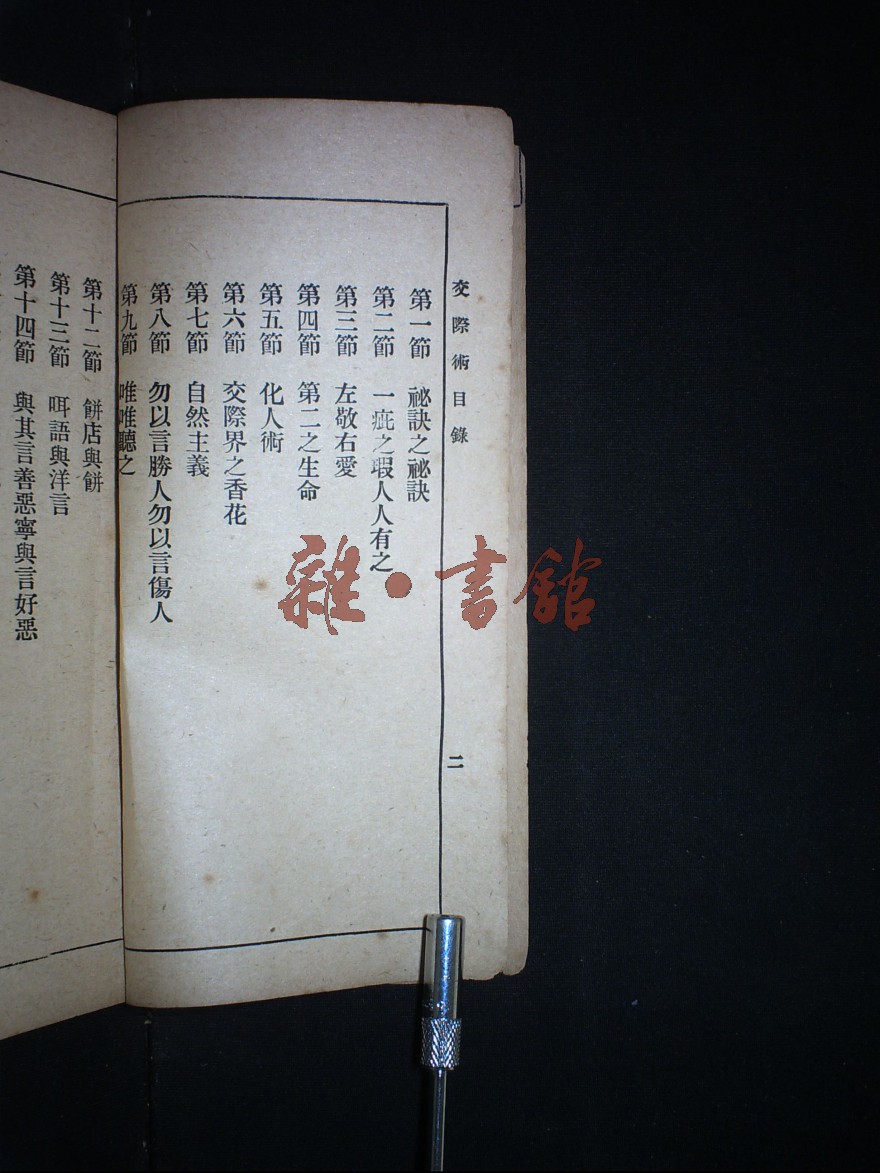 交際術目錄
二
第一節 祕訣之祕訣
第二節 一疵之瑕人人有之
第三節 左敬右愛
第四節 第二之生命
第五節 化人術
第六節 交際界之香花
第七節 自然主義
第八節 勿以言勝人勿以言傷人
第九節 唯唯聽之
第十二節 餅店與餅
第十三節 咡語與洋言
第十四節 與其言善惡寧與言好惡
雜·書館